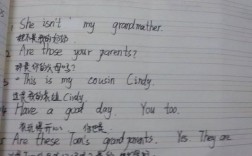 She isn't my grandmother.
她不是我的奶奶
2. Are those your parents?
那是你的父母吗?
This is my cousin Cindy.
这是我的表妹Cindy.
Have a good day. You too.
你也是
Are these Tom's grandparents. Yes They are